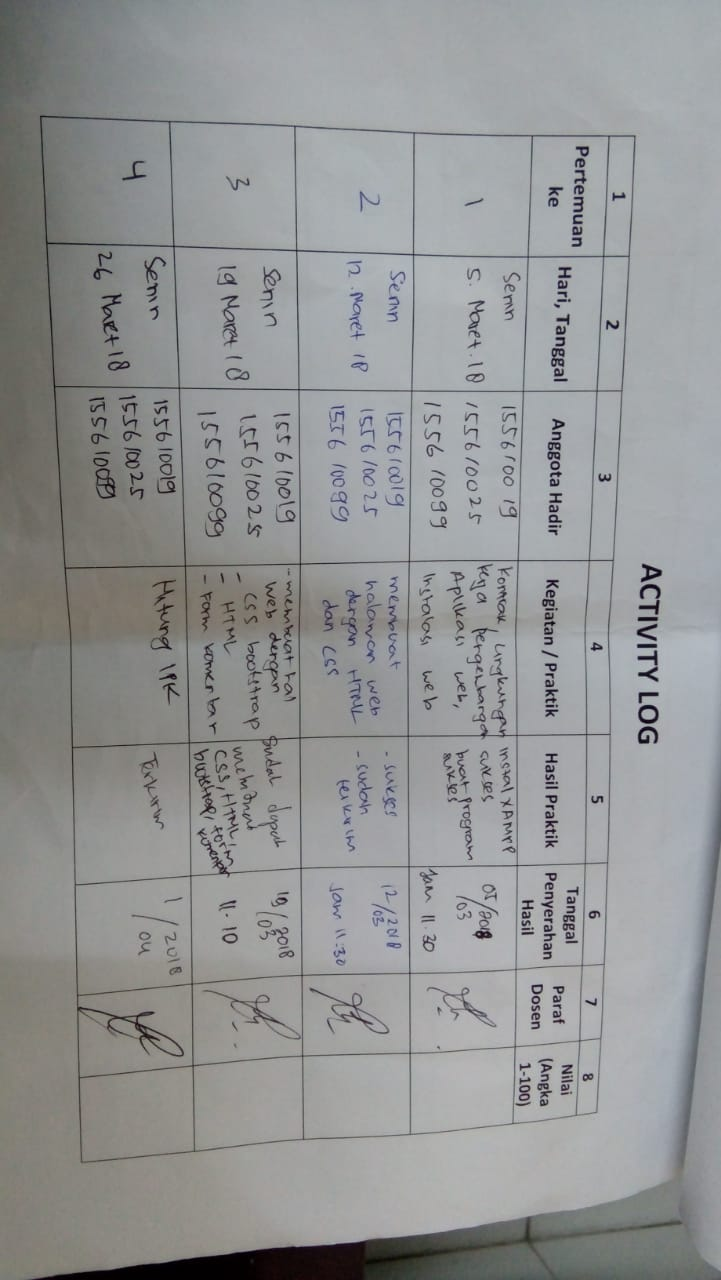 ACTIVITY LOG
1 2 3 4 5 6 7 8
Pertemuan ke
Hari, Tanggal
Anggota Hadir
Kegiatan / Praktik
Hasil Praktik
Tanggal Penyerahan Hasil
Paraf Dosen
Nilai (Angka 1-100)
1
Senin
5. Maret. 18
155610019
155610025
155610099
Kontrak, Lingkungan
kerja pengembangan
Aplikasi web,
Instalasi web
instal XAMPP
sukses
buat program
sukses
05/2018
/03
Jam 11.30
2
Senin
12. Maret 18
155610019
155610025
155610099
membuat
halaman web
dengan HTML
dan CSS
- sukses
- sudah
terkirim
12/2018
/03
Jam 11:30
3
Senin
19 Maret 18
155610019
155610025
155610099
- membuat hal
web dengan
- CSS bootstrap
- HTML
- Form komentar
Sudah dapat
membuat
CSS, HTML,
bootstrap, form
komentar
19/2018
/03
11.10
4
Senin
26 Maret 18
155610019
155610025
155610099
Hitung IPK
Terkirim
1/2018
/04